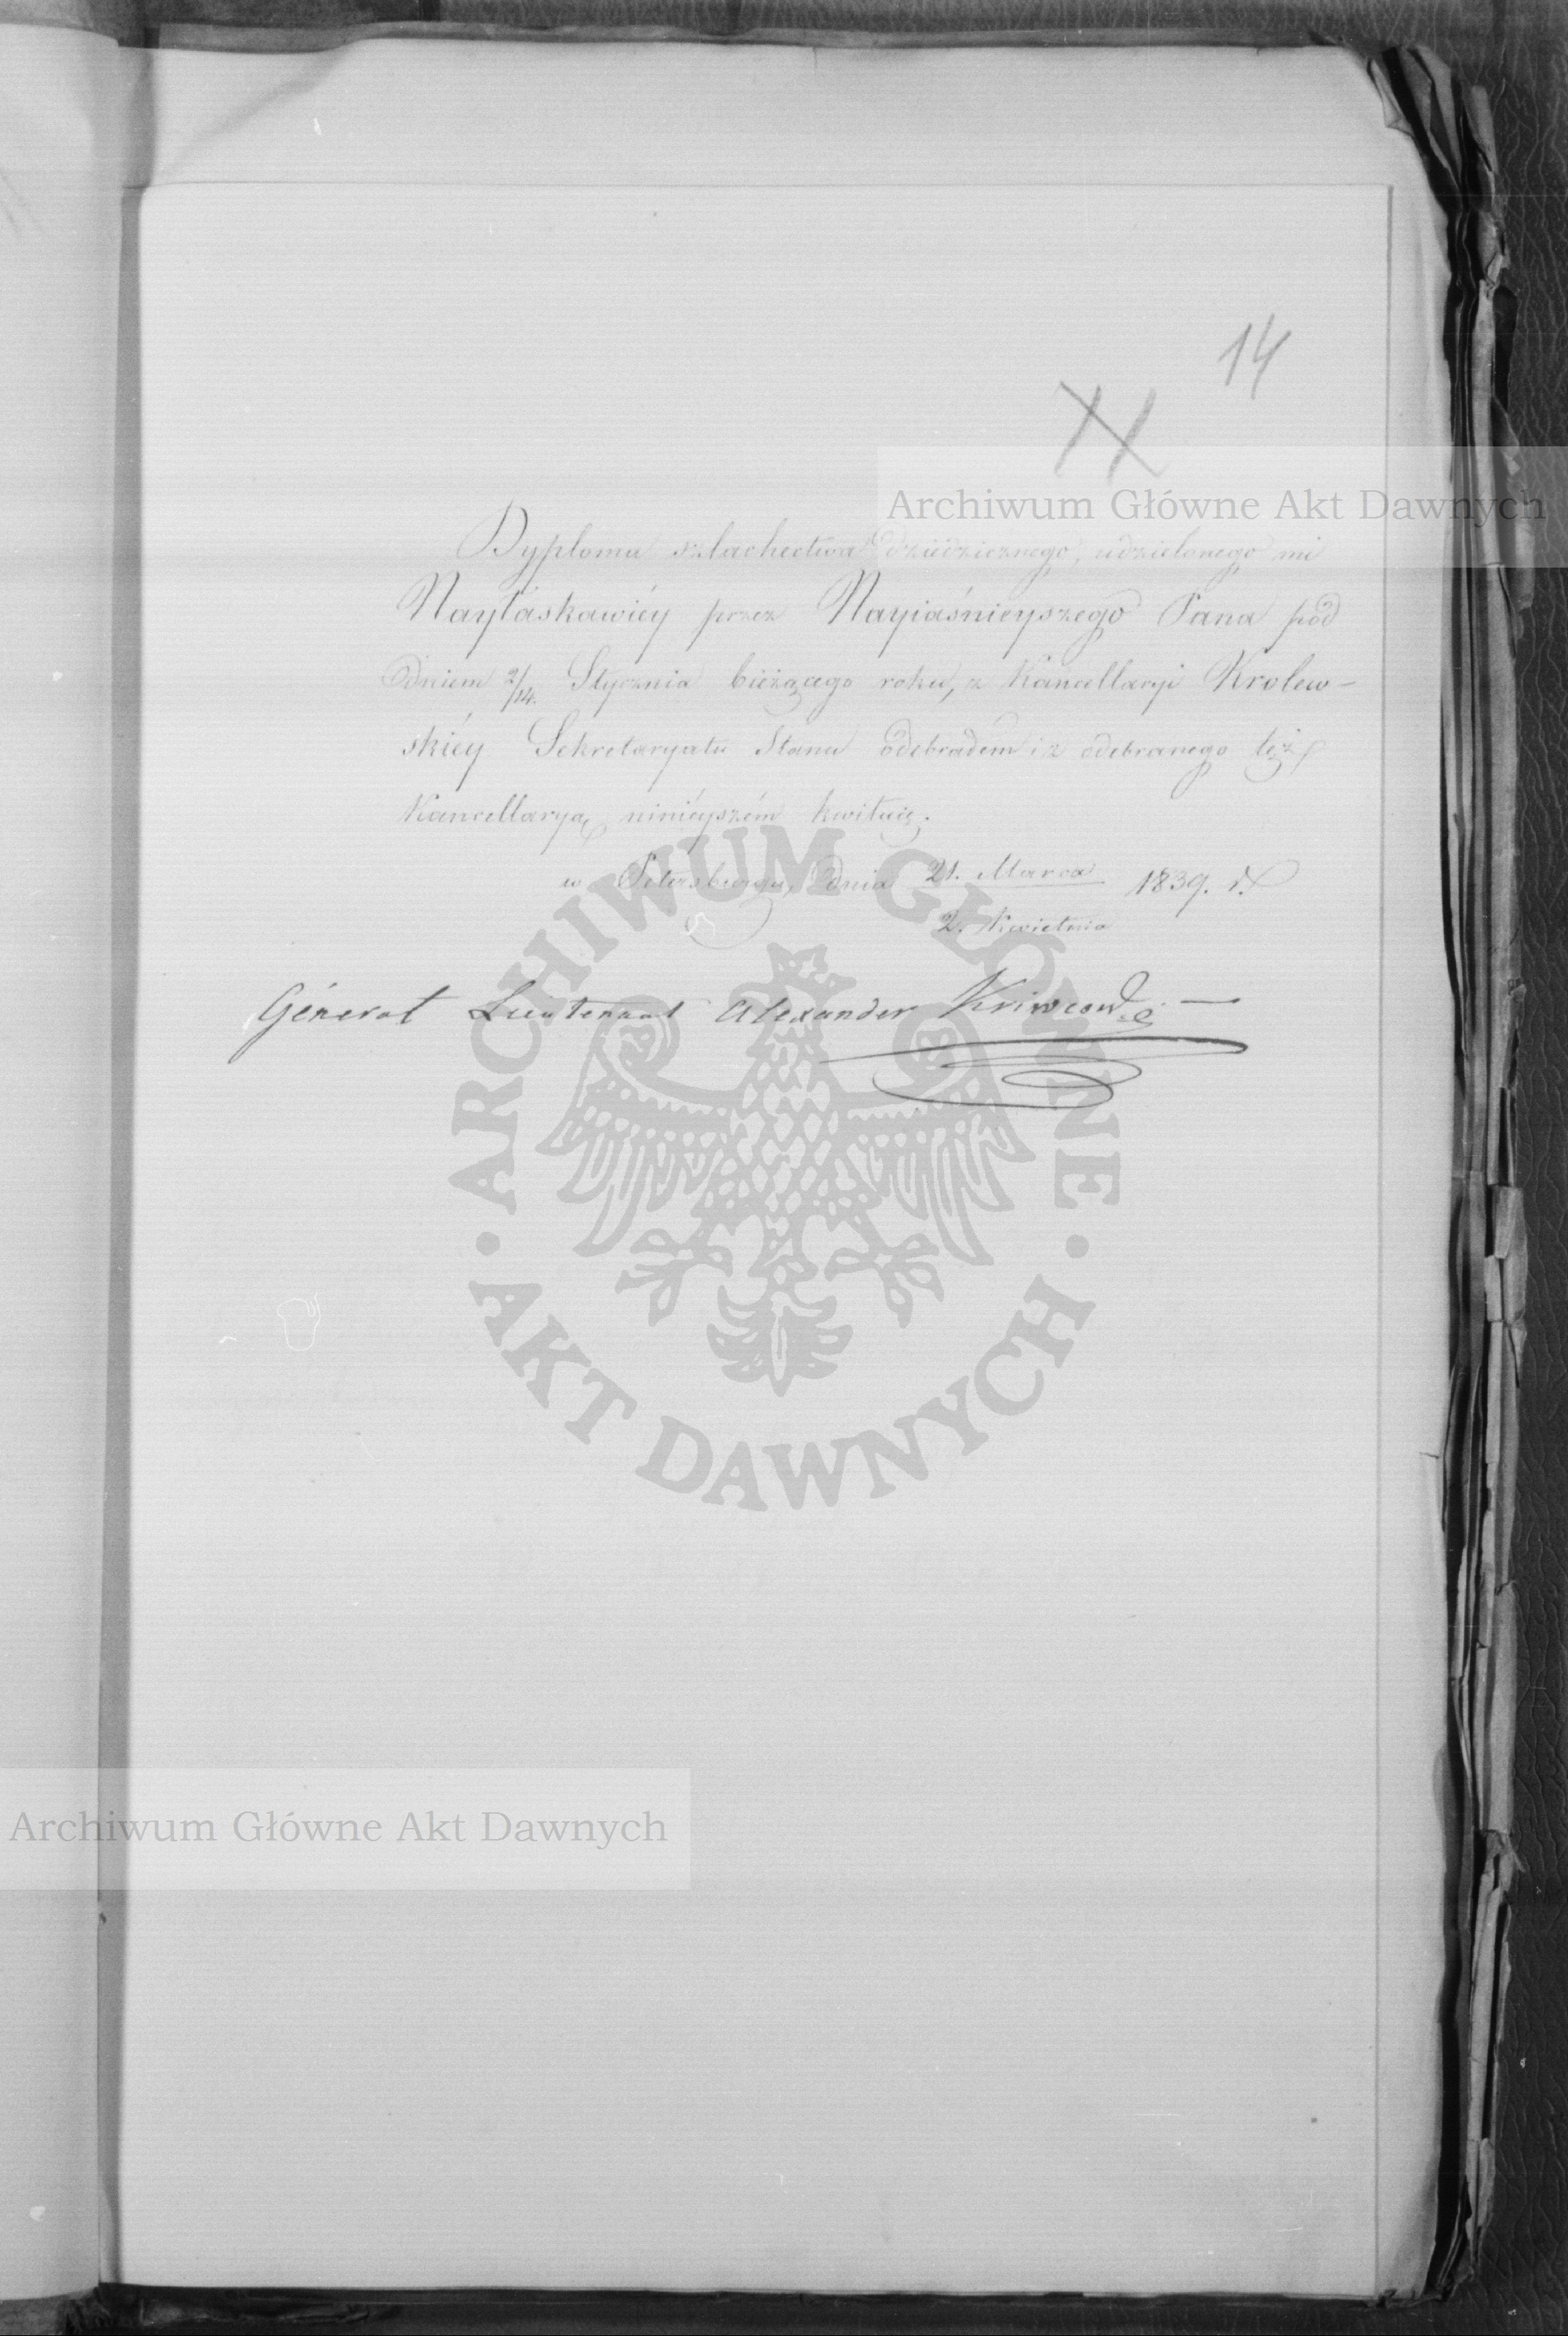 14
Archiwum Główne Akt Dawnych
Dyploma szlachectwa dziedzicznego, udzielonego mi
Nayłaskawiéy przez Nayiaśnieyszego Pana pod
Dniem 2/14. Stycznia bieżącego roku, z Kancellaryi Krolew-
skiéy Sekretaryatu Stanu odebrałem i z odebranego też
Kancellaryą ninieyszém kwituię.
w Petersburgu, dnia 21. Marca 1839. r.
2. Kwietnia
Général Lieutenant Alexander Kriwcow
ARCHIWUM GŁÓWNE · AKT DAWNYCH ·
Archiwum Główne Akt Dawnych